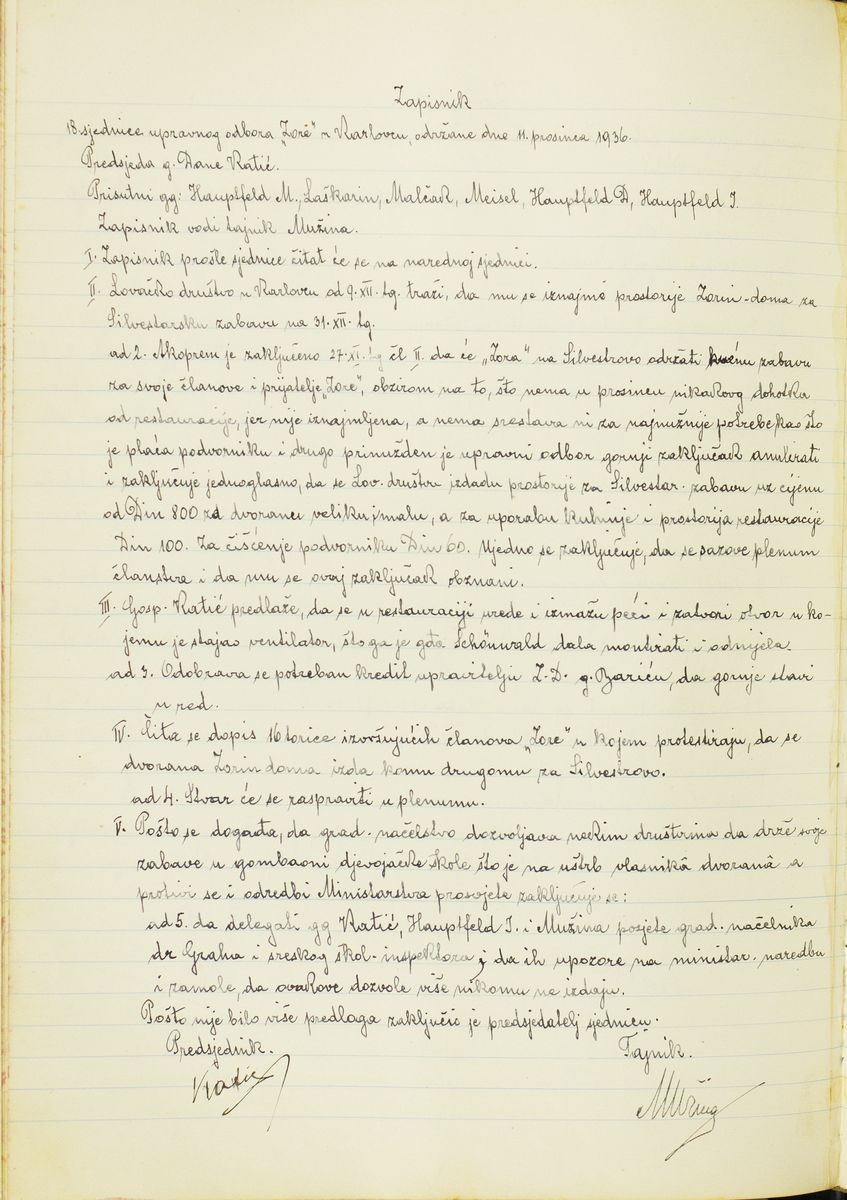 Zapisnik
18. sjednice upravnog odbora „Zore" u Karlovcu, održane dne 11. prosinca 1936.
Predsjeda g. Dane Katić.
Prisutni gg: Hauptfeld M., Laškarin, Malčak, Meisel, Hauptfeld D, Hauptfeld I.
Zapisnik vodi tajnik Mužina.
I. Zapisnik prošle sjednice čitat će se na narednoj sjednici.
II. Lovačko društvo u Karlovcu od 9.XII. tg. traži, da mu se iznajme prostorije Zorin-doma za
Silvestarsku zabavu na 31.XII. tg.
ad 2. Akoprem je zaključeno 27.XI. tg čl II. da će „Zora" na Silvestrovo održati kućnu zabavu
za svoje članove i prijatelje „Zore", obzirom na to, što nema u prosincu nikakovog dohotka
od restauracije, jer nije iznajmljena, a nema srestava ni za najnužnije potrebe kao što
je plaća podvorniku i drugo prinužden je upravni odbor gornji zaključak anulirati
i zaključuje jednoglasno, da se Lov. društvu izdadu prostorije za Silvestar. zabavu uz cijenu
od Din 800 za dvoranu veliku i malu, a za uporabu kuhinje i prostorija restauracije
Din 100. Za čišćenje podvorniku Din 60. Ujedno se zaključuje, da se sazove plenum
članstva i da mu se ovaj zaključak obznani.
III. Gosp. Katić predlaže, da se u restauraciji urede i izmažu peći i zatvori otvor u ko-
jemu je stajao ventilator, što ga je gđa Schönwald dala montirati i odnijela.
ad 3. Odobrava se potreban kredit upravitelju Z.D. g. Bariću, da gornje stavi
u red.
IV. Čita se dopis 16torice izvršujućih članova „Zore" u kojem protestiraju, da se
dvorana Zorin doma izda komu drugomu za Silvestrovo.
ad 4. Stvar će se raspraviti u plenumu.
V. Pošto se događa, da grad. načelstvo dozvoljava nekim društvima da drže svoje
zabave u gombaoni djevojačke škole što je na uštrb vlasnikâ dvoranâ a
protivi se i odredbi Ministarstva prosvjete zaključuje se:
ad 5. da delegati gg Katić, Hauptfeld I. i Mužina posjete grad. načelnika
dr Graha i sreskog škol. inspektora, i da ih upozore na ministar. naredbu
i zamole, da ovakove dozvole više nikomu ne izdaju.
Pošto nije bilo više predloga zaključio je predsjedatelj sjednicu.
Predsjednik.
Tajnik.
Katić
Mužina